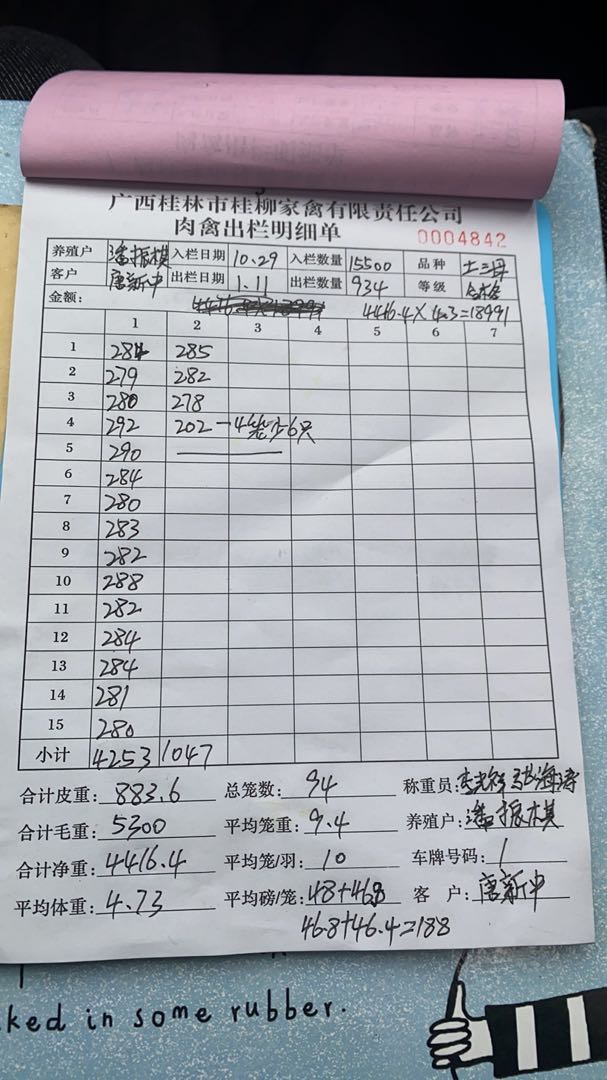 广西桂林市桂柳家禽有限责任公司
肉禽出栏明细单 0004842
养殖户 潘振模 入栏日期 10.29 入栏数量 15500 品种 土三丹
客户 唐新中 出栏日期 1.11 出栏数量 934 等级 合格
金额: 4416.4×4.3=18991
1 2 3 4 5 6 7
1 284 285
2 279 282
3 280 278
4 292 202-4笼少6只
5 290
6 284
7 280
8 283
9 282
10 288
11 282
12 284
13 284
14 281
15 280
小计 4253 1047
合计皮重: 883.6 总笼数: 94 称重员:
合计毛重: 5300 平均笼重: 9.4 养殖户: 潘振模
合计净重: 4416.4 平均笼/羽: 10 车牌号码: 1
平均体重: 4.73 平均磅/笼: 48+46.8 客户: 唐新中
46.8+46.4=188
ked in some rubber.